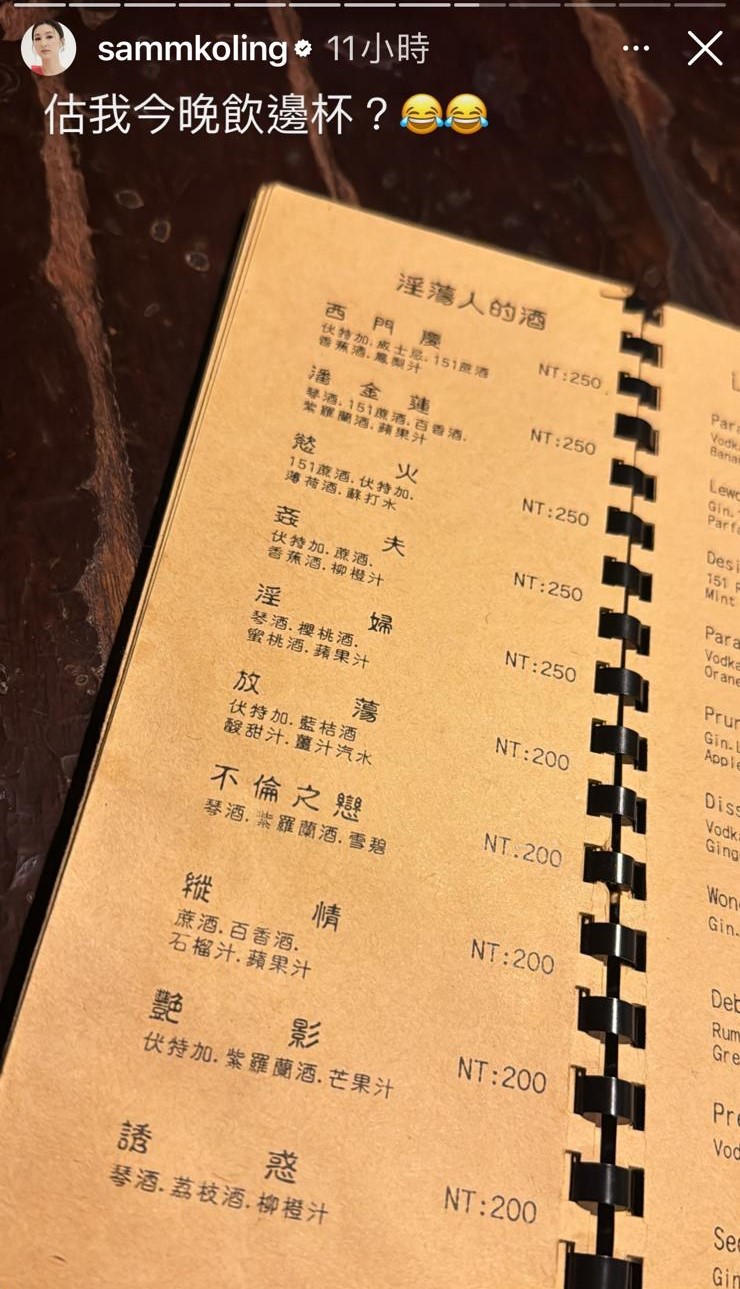 sammkoling 11小時
估我今晚飲邊杯？😂😂
淫蕩人的酒
西門慶
伏特加.威士忌.151蔗酒
香蕉酒.鳳梨汁
NT:250
潘金蓮
琴酒.151蔗酒.百香酒.
紫羅蘭酒.蘋果汁
NT:250
慾火
151蔗酒.伏特加.
薄荷酒.蘇打水
NT:250
姦夫
伏特加.蔗酒.
香蕉酒.柳橙汁
NT:250
淫婦
琴酒.櫻桃酒.
蜜桃酒.蘋果汁
NT:250
放蕩
伏特加.藍桔酒
酸甜汁.薑汁汽水
NT:200
不倫之戀
琴酒.紫羅蘭酒.雪碧
NT.200
縱情
蔗酒.百香酒.
石榴汁.蘋果汁
NT:200
艷影
伏特加.紫羅蘭酒.芒果汁
NT:200
誘惑
琴酒.荔枝酒.柳橙汁
NT:200
Gin.
151
Mint
Gin.
Gin